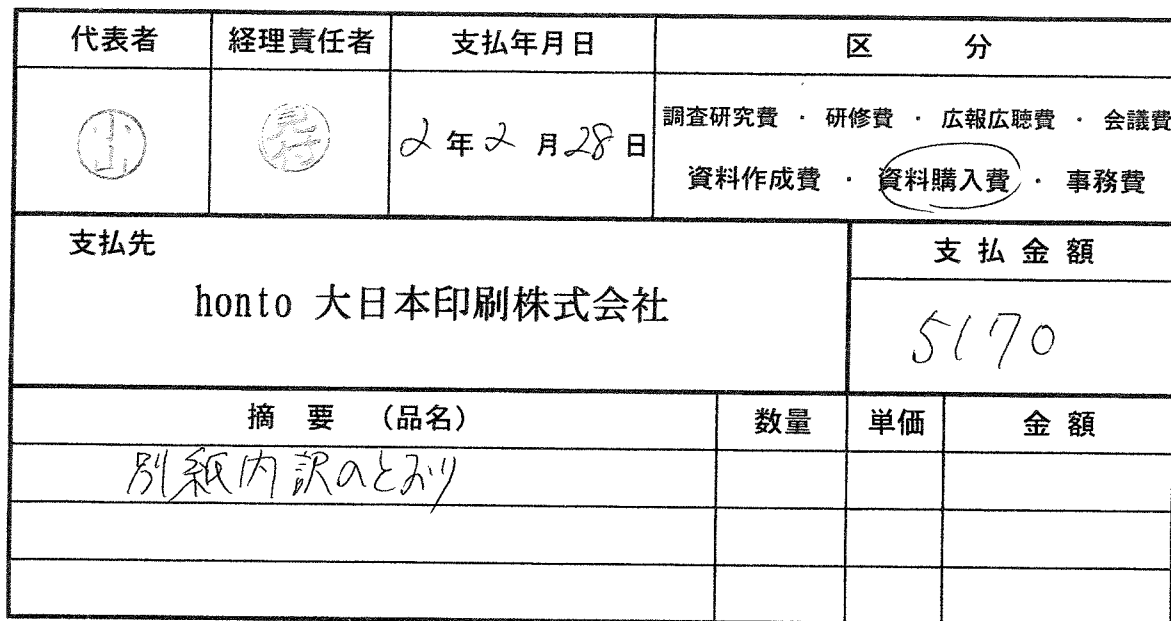 代表者 経理責任者 支払年月日 区 分
2 年 2 月 28 日
調査研究費 ・ 研修費 ・ 広報広聴費 ・ 会議費
資料作成費 ・ 資料購入費 ・ 事務費
支払先 支払金額
honto 大日本印刷株式会社
5170
摘 要 (品名) 数量 単価 金 額
別紙内訳のとおり